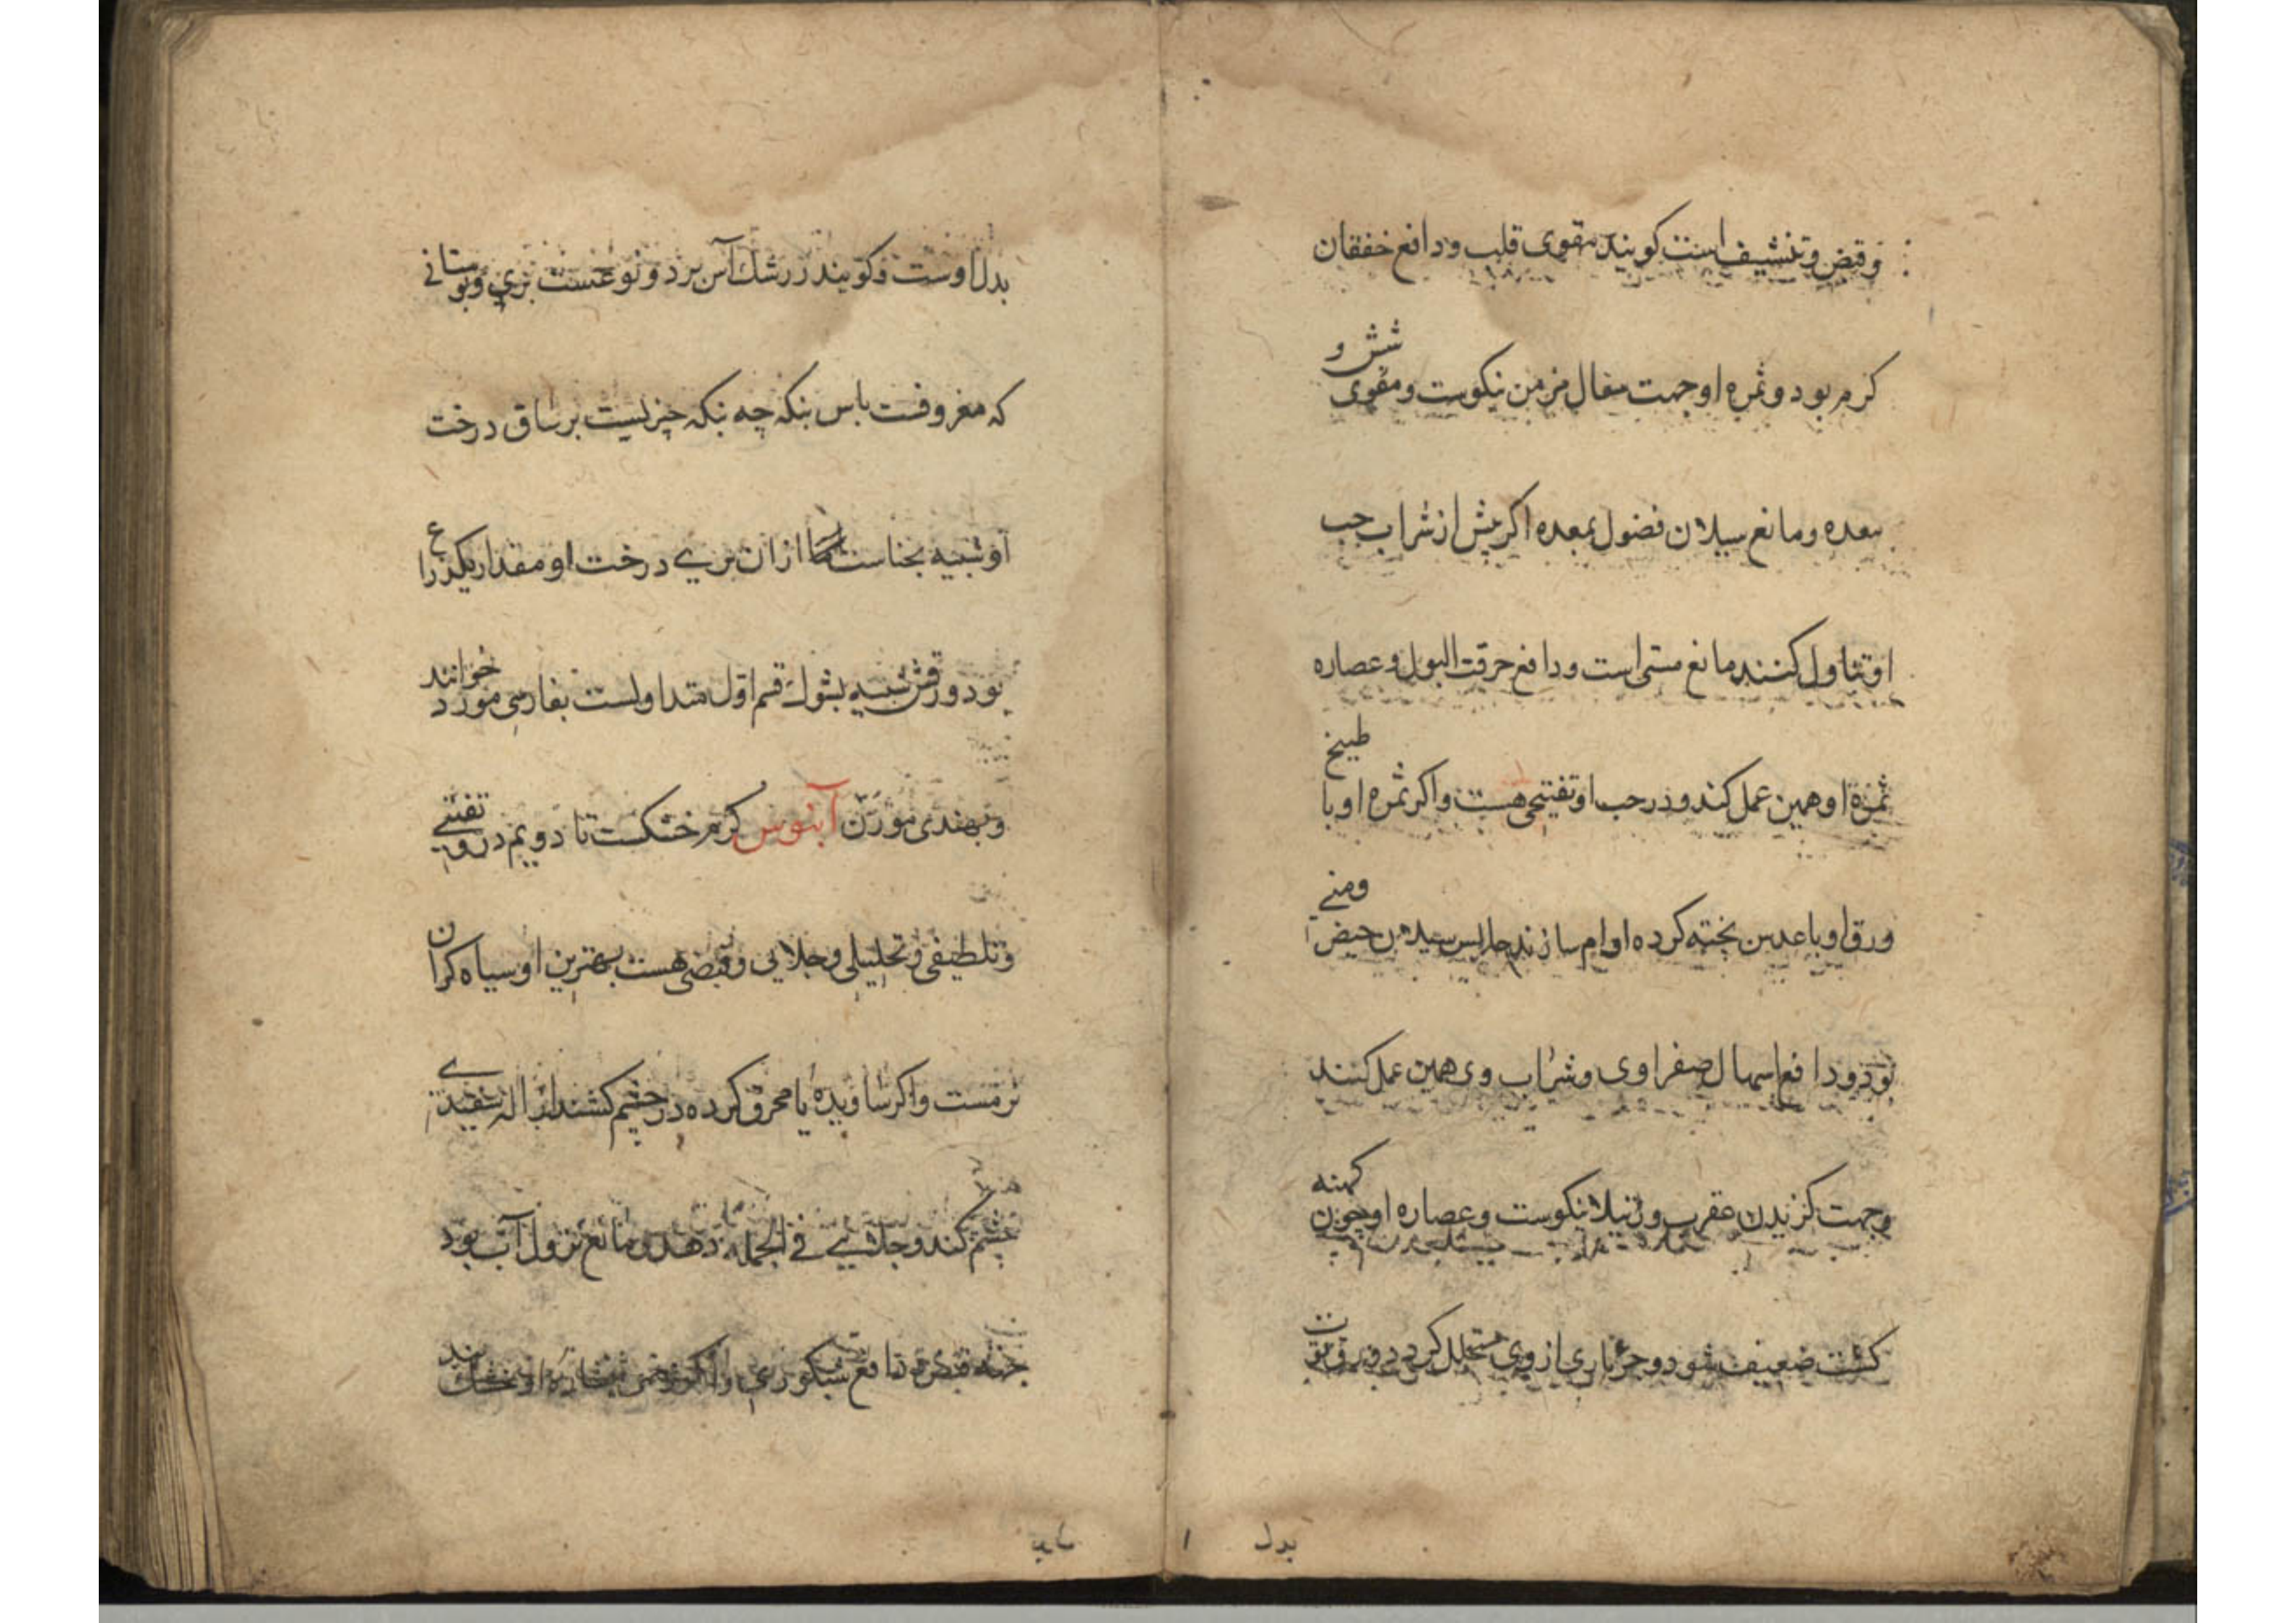 و قبض و تنشیف است کویند مقوی قلب و دافع خفقان
کرم بود و ثمره او جهت سعال مزمن نیکوست و مقوی شش و
معده و مانع سیلان فضول بمعده اکر پیش از شراب حب
او تناول کنند مانع مستی است و دافع حرقت البول و عصاره
ثمرة او همین عمل کند و در حب او تفتیحی هست و اکر ثمره او با طبیخ
ورق او با عدس پخته کرده اوام سازند حابس سیلان حیض ومنی
بود و دافع اسهال صفراوی و شراب وی همین عمل کند
و جهت کزیدن عقرب و رتیلا نیکوست و عصاره او چون کهنه
کشت ضعیف شود و جزباری از وی متحلل کردد و ورق
بدل
بدل اوست و کویند زرشك آس برد و نوعست بری و بوستانی
که معروفست باس بنکه چه بنکه چیزیست بر ساق درخت
او شبیه بحناست اما از ان بری درخت او مقدار یکذراع
بود و ورقش شبیه بشوك قسم اول متداولست بفارسی مورد خوانند
و بهندی مورن آبنوس کرم خشکست تا دویم در و تفتیی
و تلطیفی و تحلیلی و جلایی و قبضی هست بهترین او سیاه کران
نرمست و اکر ساویده یا محرق کرده در چشم کشند ازاله سفیدی
چشم کند و جلائی فی الجمله دهد و مانع نزول آب بود
قبض و دافع شبکوری و اکر